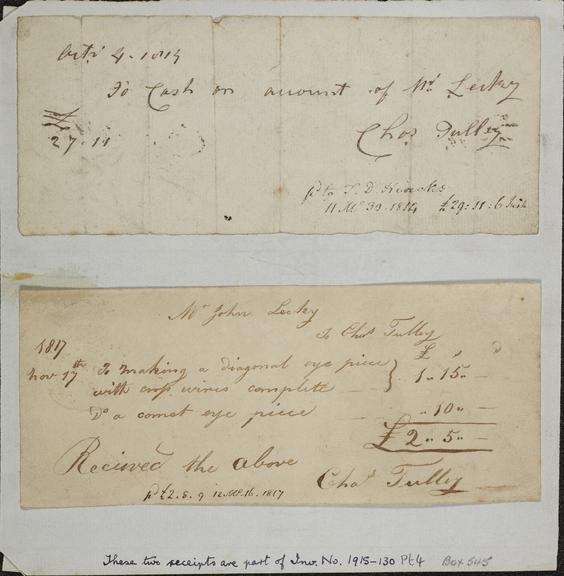 Octr 4. 1814
To Cash on account of Mr Lecky
27.11
Chas Tully
pd to T. D.
11 Mo. 30. 1814 £29:11:6 Irish
Mr John Lecky
To Chas Tulley
1817
£ s d
Nov 17th To making a diagonal eye piece
with cross wires complete } 1 " 15 " —
Do a comet eye piece — " 10 " —
£ 2 " 5 " —
Received the above
Chas Tulley
pd £2.8.9 12 Mo. 16. 1817
These two receipts are part of Inv. No. 1915-130 Pt4 Box 545